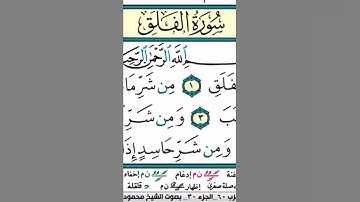 سُورَةُ الْفَلَقِ
اللَّهِ الرَّحْمَٰنِ الرَّحِ
فَلَقِ ١ مِن شَرِّ مَا
بَ ٣ وَمِن شَرِّ
وَمِن شَرِّ حَاسِدٍ إِذَا
غنة ن م إدغام ن م إخفاء
صلة صغرى إظهار ن م قلقلة
زب ٦٠ _ الجزء ٣٠ _ بصوت الشيخ محمود